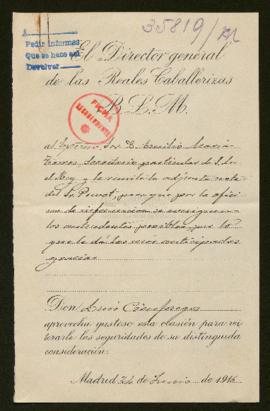 35819/
A
Pedir informes
Que se hace así
Devolver
El Director general
de las Reales Caballerizas
B. L. M.
FICHA
al Excmo. Sor. D. Emilio María
Torres, Secretario particular de S. M.
el Rey y le remite la adjunta nota
del Sr. para que por la oficina
de información se averigüe
los antecedentes posibles, por lo
que le da las anticipadas
gracias
Don Luis
aprovecha gustoso esta ocasión para rei-
terarle las seguridades de su distinguida
consideración.
Madrid 24 de Junio de 1916